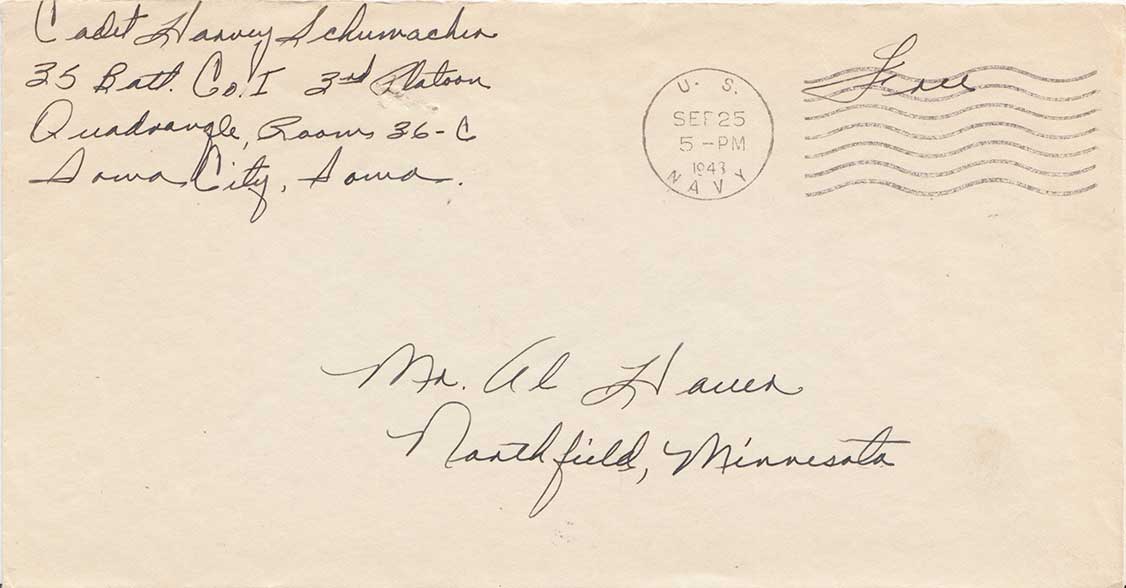 Cadet Harvey Schumacher
35 Batt. Co. I 3rd Platoon
Quadrangle, Room 36-C
Iowa City, Iowa.
U. S.
SEP 25
5 -PM
1943
NAVY
Free
Mr. Al Hauer
Northfield, Minnesota